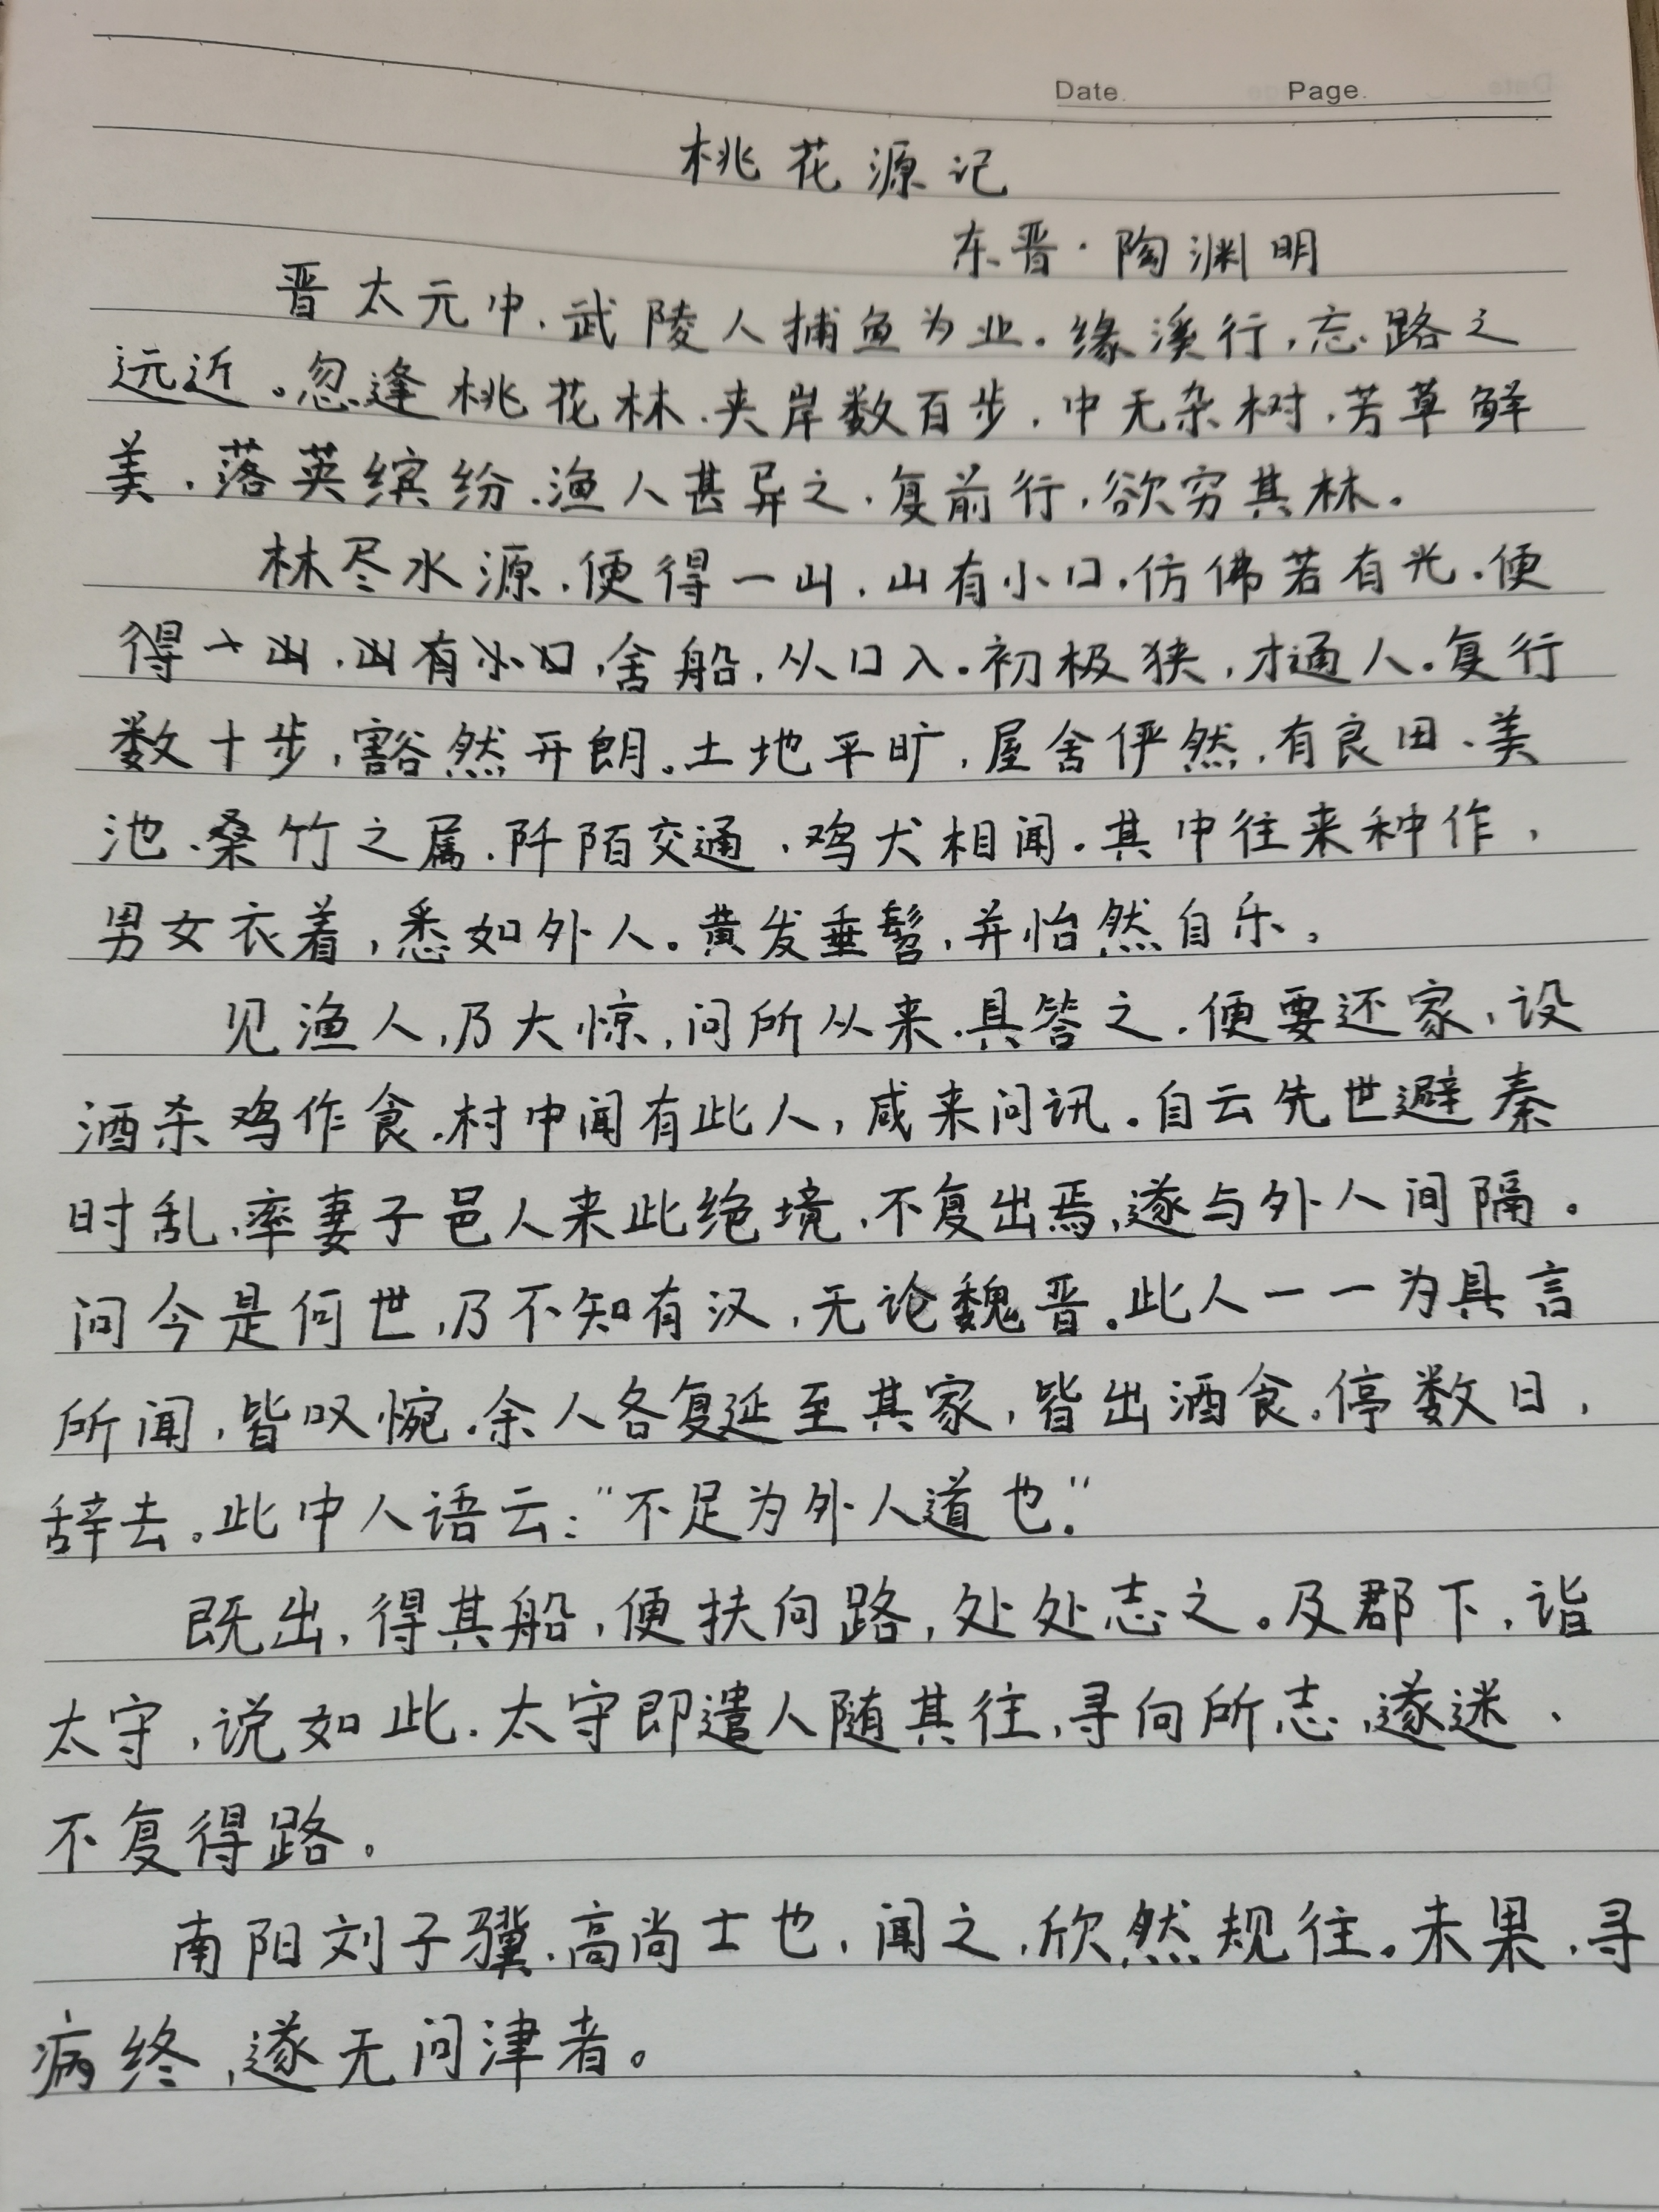 Date. Page.
桃花源记
东晋·陶渊明
晋太元中,武陵人捕鱼为业。缘溪行,忘路之
远近。忽逢桃花林,夹岸数百步,中无杂树,芳草鲜
美,落英缤纷,渔人甚异之,复前行,欲穷其林。
林尽水源,便得一山,山有小口,仿佛若有光。便
得一山,山有小口,舍船,从口入。初极狭,才通人。复行
数十步,豁然开朗。土地平旷,屋舍俨然,有良田、美
池、桑竹之属。阡陌交通,鸡犬相闻。其中往来种作,
男女衣着,悉如外人。黄发垂髫,并怡然自乐。
见渔人,乃大惊,问所从来。具答之。便要还家,设
酒杀鸡作食。村中闻有此人,咸来问讯。自云先世避秦
时乱,率妻子邑人来此绝境,不复出焉,遂与外人间隔。
问今是何世,乃不知有汉,无论魏晋。此人一一为具言
所闻,皆叹惋。余人各复延至其家,皆出酒食。停数日,
辞去。此中人语云:“不足为外人道也。”
既出,得其船,便扶向路,处处志之。及郡下,诣
太守,说如此。太守即遣人随其往,寻向所志,遂迷,
不复得路。
南阳刘子骥,高尚士也,闻之,欣然规往。未果,寻
病终,遂无问津者。